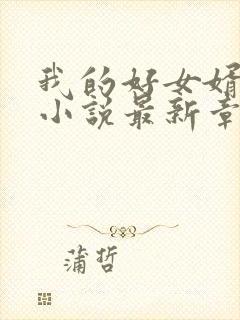 我的好女婿
小说最新章
蒲哲